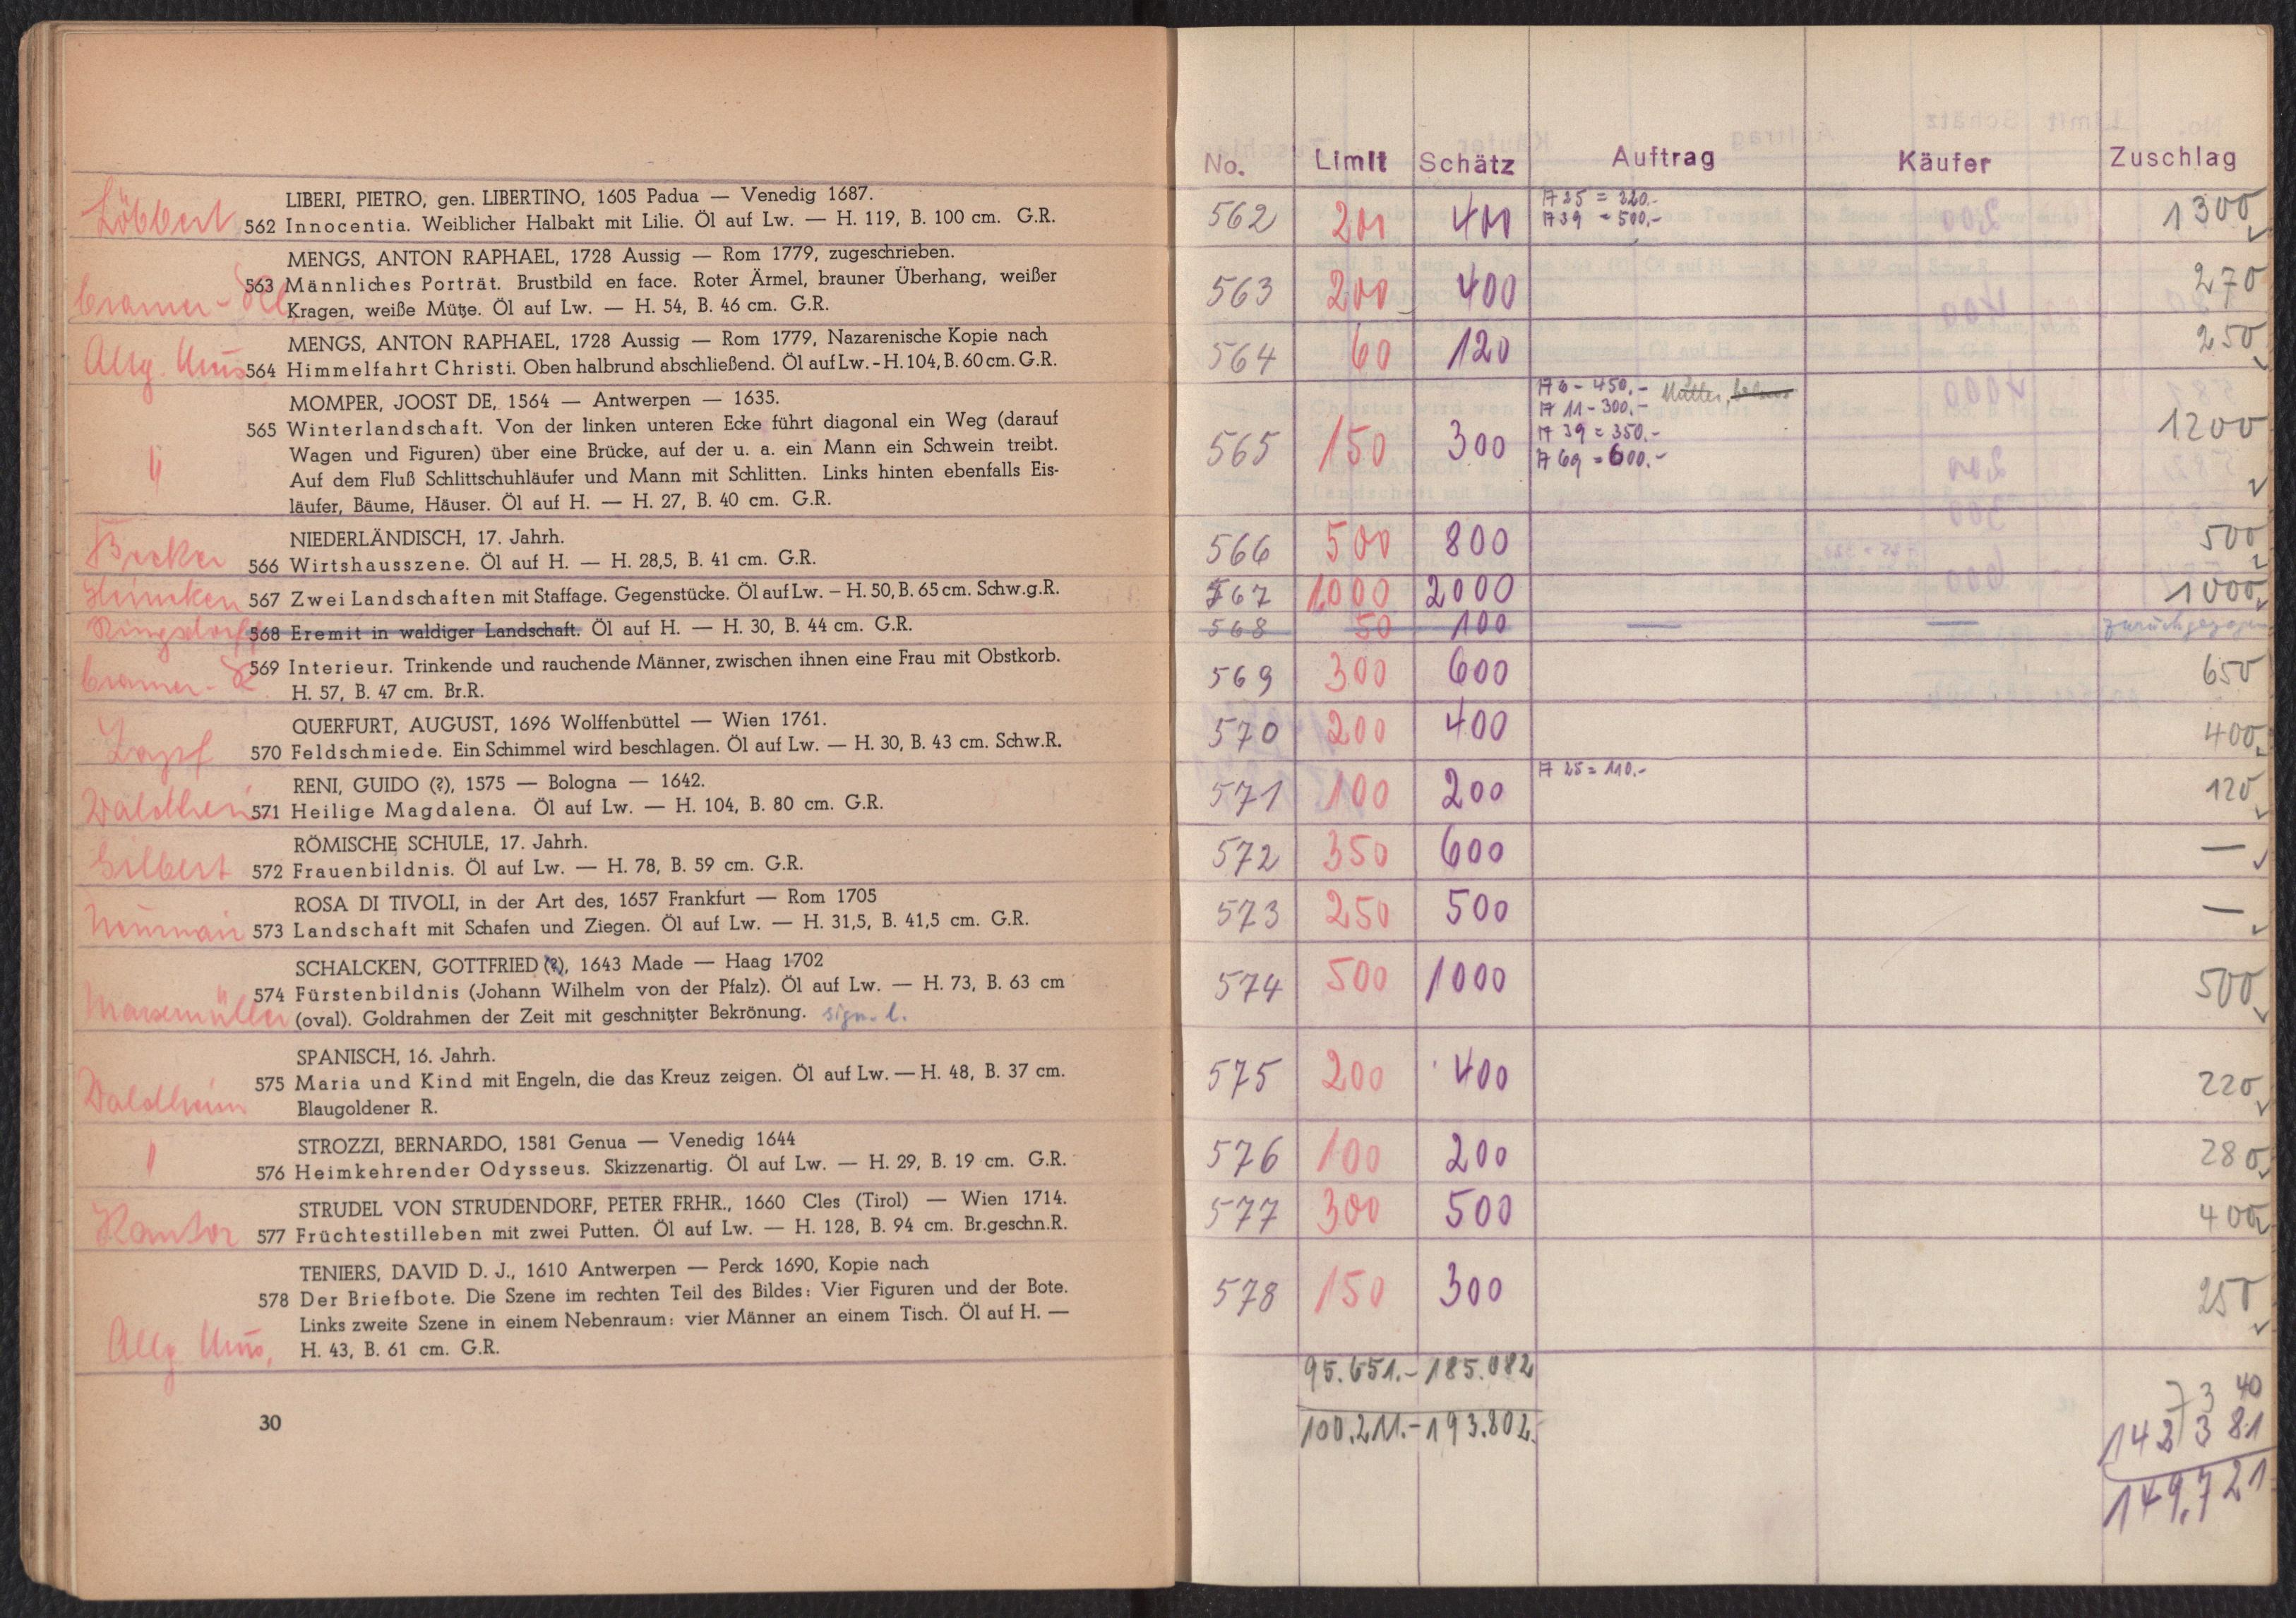 LIBERI, PIETRO, gen. LIBERTINO, 1605 Padua — Venedig 1687.
Löbbert 562 Innocentia. Weiblicher Halbakt mit Lilie. Öl auf Lw. — H. 119, B. 100 cm. G.R.
MENGS, ANTON RAPHAEL, 1728 Aussig — Rom 1779, zugeschrieben.
Cramer - 563 Männliches Porträt. Brustbild en face. Roter Ärmel, brauner Überhang, weißer
Kragen, weiße Mütze. Öl auf Lw. — H. 54, B. 46 cm. G.R.
MENGS, ANTON RAPHAEL, 1728 Aussig — Rom 1779, Nazarenische Kopie nach
Allg. 564 Himmelfahrt Christi. Oben halbrund abschließend. Öl auf Lw. - H. 104, B. 60 cm. G.R.
MOMPER, JOOST DE, 1564 — Antwerpen — 1635.
565 Winterlandschaft. Von der linken unteren Ecke führt diagonal ein Weg (darauf
Wagen und Figuren) über eine Brücke, auf der u. a. ein Mann ein Schwein treibt.
" Auf dem Fluß Schlittschuhläufer und Mann mit Schlitten. Links hinten ebenfalls Eis-
läufer, Bäume, Häuser. Öl auf H. — H. 27, B. 40 cm. G.R.
NIEDERLÄNDISCH, 17. Jahrh.
Becker 566 Wirtshausszene. Öl auf H. — H. 28,5, B. 41 cm. G.R.
567 Zwei Landschaften mit Staffage. Gegenstücke. Öl auf Lw. – H. 50, B. 65 cm. Schw.g.R.
Ringsdorff 568 Eremit in waldiger Landschaft. Öl auf H. — H. 30, B. 44 cm. G.R.
Cramer - 569 Interieur. Trinkende und rauchende Männer, zwischen ihnen eine Frau mit Obstkorb.
H. 57, B. 47 cm. Br.R.
QUERFURT, AUGUST, 1696 Wolffenbüttel — Wien 1761.
Zapf 570 Feldschmiede. Ein Schimmel wird beschlagen. Öl auf Lw. — H. 30, B. 43 cm. Schw.R.
RENI, GUIDO (?), 1575 — Bologna — 1642.
Waldheim 571 Heilige Magdalena. Öl auf Lw. — H. 104, B. 80 cm. G.R.
RÖMISCHE SCHULE, 17. Jahrh.
Gilbert 572 Frauenbildnis. Öl auf Lw. — H. 78, B. 59 cm. G.R.
ROSA DI TIVOLI, in der Art des, 1657 Frankfurt — Rom 1705
573 Landschaft mit Schafen und Ziegen. Öl auf Lw. — H. 31,5, B. 41,5 cm. G.R.
SCHALCKEN, GOTTFRIED (?), 1643 Made — Haag 1702
574 Fürstenbildnis (Johann Wilhelm von der Pfalz). Öl auf Lw. — H. 73, B. 63 cm
(oval). Goldrahmen der Zeit mit geschnitzter Bekrönung. sign. l.
SPANISCH, 16. Jahrh.
Waldheim 575 Maria und Kind mit Engeln, die das Kreuz zeigen. Öl auf Lw. — H. 48, B. 37 cm.
Blaugoldener R.
STROZZI, BERNARDO, 1581 Genua — Venedig 1644
576 Heimkehrender Odysseus. Skizzenartig. Öl auf Lw. — H. 29, B. 19 cm. G.R.
STRUDEL VON STRUDENDORF, PETER FRHR., 1660 Cles (Tirol) — Wien 1714.
Kantor 577 Früchtestilleben mit zwei Putten. Öl auf Lw. — H. 128, B. 94 cm. Br.geschn.R.
TENIERS, DAVID D. J., 1610 Antwerpen — Perck 1690, Kopie nach
578 Der Briefbote. Die Szene im rechten Teil des Bildes: Vier Figuren und der Bote.
Links zweite Szene in einem Nebenraum: vier Männer an einem Tisch. Öl auf H. —
Allg H. 43, B. 61 cm. G.R.
30
No. Limit Schätz Auftrag Käufer Zuschlag
562 200 400 A 25 = 220.- 1300
A 39 = 500,-
563 200 400 270
564 60 120 250
565 150 300 A 6 - 450.- 1200
A 11 - 300.-
A 39 = 350.-
A 69 = 600.-
566 500 800 500
567 1000 2000 1000
568 50 100 — — zurückgezogen
569 300 600 650
570 200 400 400
571 100 200 A 25 = 110.- 120
572 350 600 —
573 250 500 —
574 500 1000 500
575 200 400 220
576 100 200 280
577 300 500 400
578 150 300 250
95.651.- 185.082
100.211.- 193.802.-
7 3 40
142 3 81
149.721